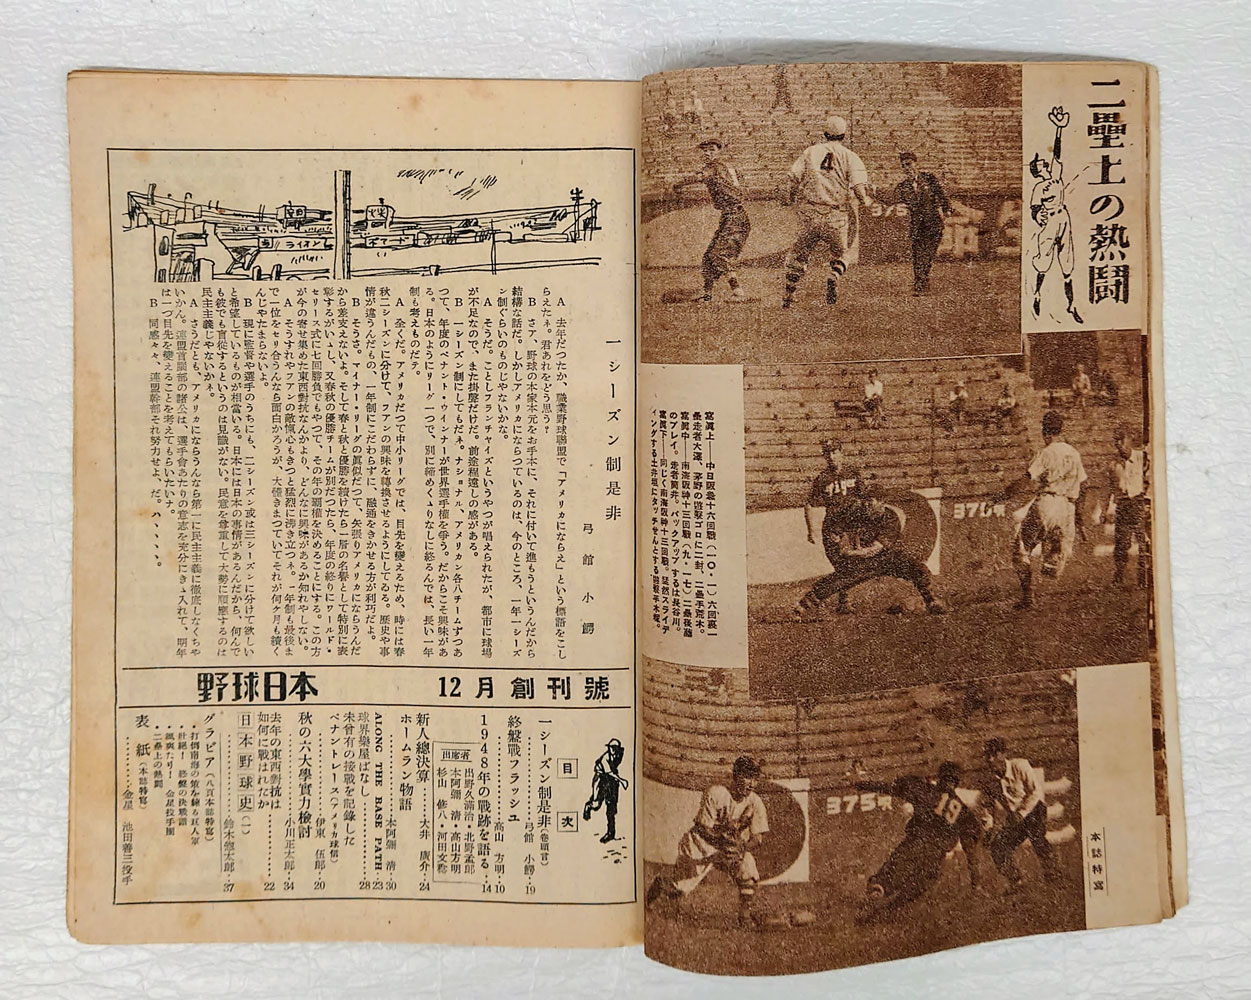 二壘上の熱鬪
寫眞上――中日阪急十六回戰(一〇・一)六回裏一
壘走者大澤、茅野の投ゴロに二封、二壘手荒木。
寫眞中――南海阪神十三回戰(九・一七)二壘後藤
のプレイ。走者筒井。バックアップするは長谷川。
寫眞下――同じく南海阪神十三回戰。猛然スライデ
ィングする土井垣にタッチせんとする遊擊手木塚。
本誌特寫
4
375
375
375
19
ライオン
一シーズン制是非
弓館小鰐
A 去年だつたか、職業野球聯盟で「アメリカにならえ」という標語をこし
らえたネ。君あれをどう思う?
B さァ、野球の本家本元をお手本に、それに付いて進もうというんだから
結構な話だ。しかしアメリカにならつているのは、今のところ、一年一シーズ
ン制ぐらいのものじやないかな。
A そうだ。ことしフランチャイズというやつが唱えられたが、都市に球場
が不足なので、まだ掛聲だけだ。前途程遠しの感がある。
B 一シーズン制にしてもだネ。ナショナル、アメリカン各八チームずつあ
つて、年度のペナント・ウィンナーが世界選手權を爭う。だからこそ興味があ
る。日本のようにリーグ一つで、別に締めくゝりなしに終るんでは、長い一年
制も考えものだテ。
A 全くだ。アメリカだつて中小リーグでは、目先を變えるため、時には春
秋二シーズンに分けて、ファンの興味を轉換させるようにしてゐる。歷史や事
情が違うんだもの、一年制にこだわらずに、融通をきかせる方が利巧だよ。
B そうさ。マイナー・リーグの眞似だつて、矢張りアメリカにならうんだ
から差支えないよ。そして春と秋と優勝を續けたら一層の名譽として特別に表
彰するがいゝし、又春秋の優勝チームが別だつたら、年度の終りにワールド・
セリース式に七回勝負でもやつて、その年の覇權を決めることにする。この方
が今の寄せ集めた東西對抗なんかより、どんなに興味があるか知れやしない。
A そうすれやファンの敵愾心もきつと猛烈に沸き立つネ。一年制も最後ま
で一位をセリ合うんなら面白かろうが、大慬きまつていてそれが何ヶ月も續く
んじやたまらないよ。
B 現に監督や選手のうちにも、二シーズン或は三シーズンに分けて欲しい
と希望しているものが相當いる。日本には日本の事情があるんだから、何んで
も彼でも盲從するというのは見識がない。民意を尊重して大勢に順應するのは
民主主義じやないかネ。
A さうだとも、アメリカにならうんなら第一に民主主義に徹底しなくちや
いかん。連盟首腦部の諸公は、選手會あたりの意志を充分にきゝ入れて、明年
は一つ目先を變えることを考えてもらいたいナ。
B 同感々々、連盟幹部それ努力せよ、だ。ハヽヽヽヽ。
野球日本 12月創刊號
目次
一シーズン制是非(卷頭言)……弓館小鰐…19
終盤戰フラッシュ……高山方明…10
1948年の戰跡を語る……14
出席者
出野久滿治・北野孟郎
本阿彌淸・高山方明
杉山修八・河田文彥
新人總決算……大井廣介…24
ホームラン物語……本阿彌淸…30
ALONG THE BASE PATH……23
球界樂屋ばなし……28
未曾有の接戰を記錄した
ペナントレース(アメリカ球信)……伊東伍郎…20
秋の六大學實力檢討……小川正太郎…34
去年の東西對抗は
如何に戰はれたか……22
日本野球史(一)……鈴木惣太郎…37
グラビア(八頁本誌特寫)
・打倒南海の策を練る巨人軍
・壯絕!終盤の決戰譜
・颯爽たり!金星投手團
・二壘上の熱鬪
表紙(本誌特寫)……金星 池田善三投手